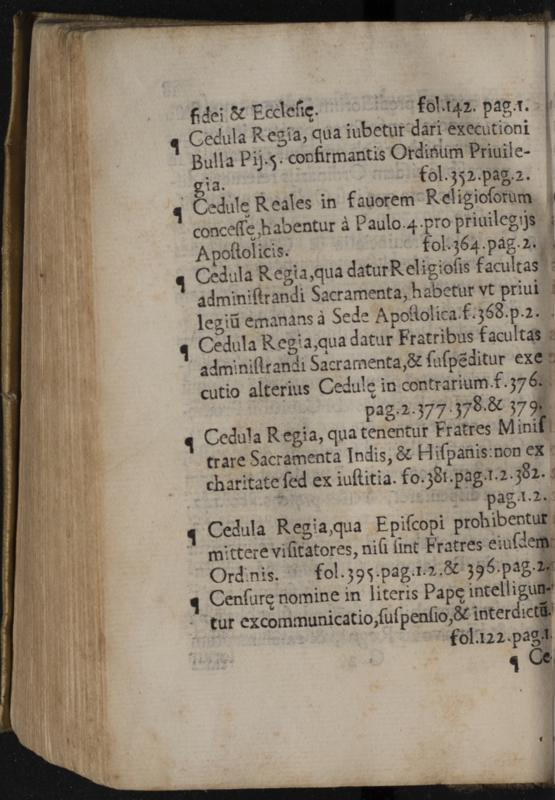 fidei & Ecclesię. fol.142. pag.1.
¶ Cedula Regia, qua iubetur dari executioni
Bulla Pij.5. confirmantis Ordinum Priuile-
gia. fol.352.pag.2.
¶ Cedulę Reales in fauorem Religiosorum
concessę,habentur à Paulo.4.pro priuilegijs
Apostolicis. fol.364.pag.2.
¶ Cedula Regia,qua daturReligiosis facultas
administrandi Sacramenta, habetur vt priui
legiũ emanans à Sede Apostolica.f.368.p.2.
¶ Cedula Regia,qua datur Fratribus facultas
administrandi Sacramenta,& suspẽditur exe
cutio alterius Cedulę in contrarium.f.376.
pag.2.377.378.& 379.
¶ Cedula Regia, qua tenentur Fratres Minis
trare Sacramenta Indis, & Hispanis:non ex
charitate sed ex iustitia. fo.381.pag.1.2.382.
pag.1.2.
¶ Cedula Regia,qua Episcopi prohibentur
mittere visitatores, nisi sint Fratres eiusdem
Ordinis. fol.395.pag.1.2.& 396.pag.2.
¶ Censurę nomine in literis Papę intelligun-
tur excommunicatio,suspensio,& interdictũ.
fol.122.pag.1.
¶ Ce